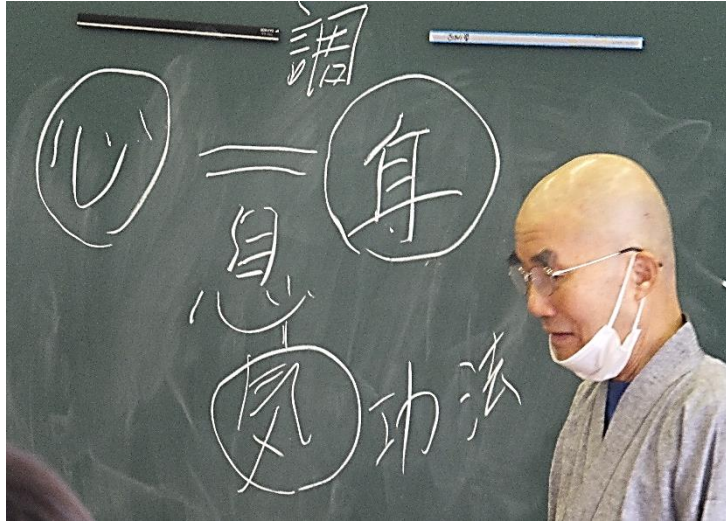 調
心 = 身
息
気功法